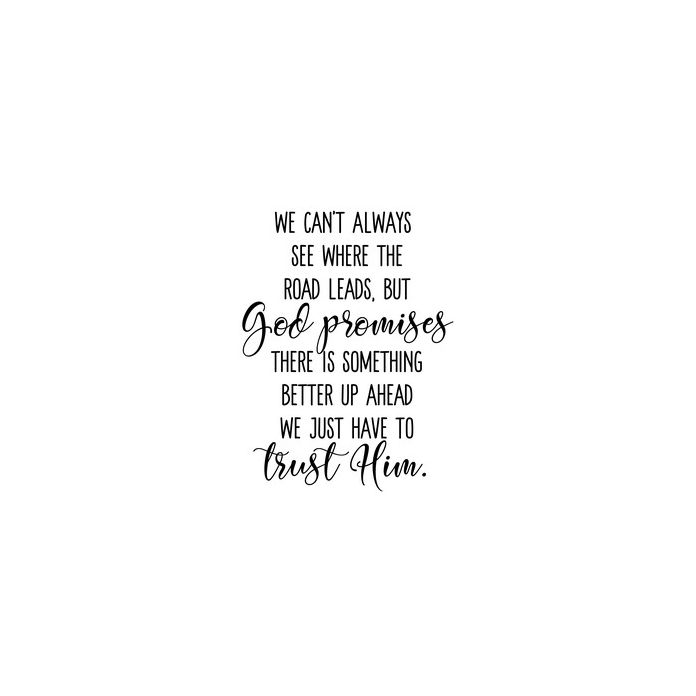 WE CAN'T ALWAYS
SEE WHERE THE
ROAD LEADS, BUT
God promises
THERE IS SOMETHING
BETTER UP AHEAD
WE JUST HAVE TO
trust Him.